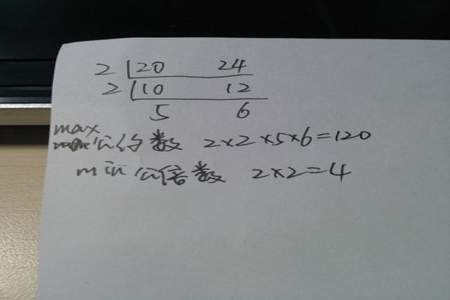 2 20 24
2 10 12
5 6
max 公约数 2×2×5×6=120
min 公倍数 2×2=4